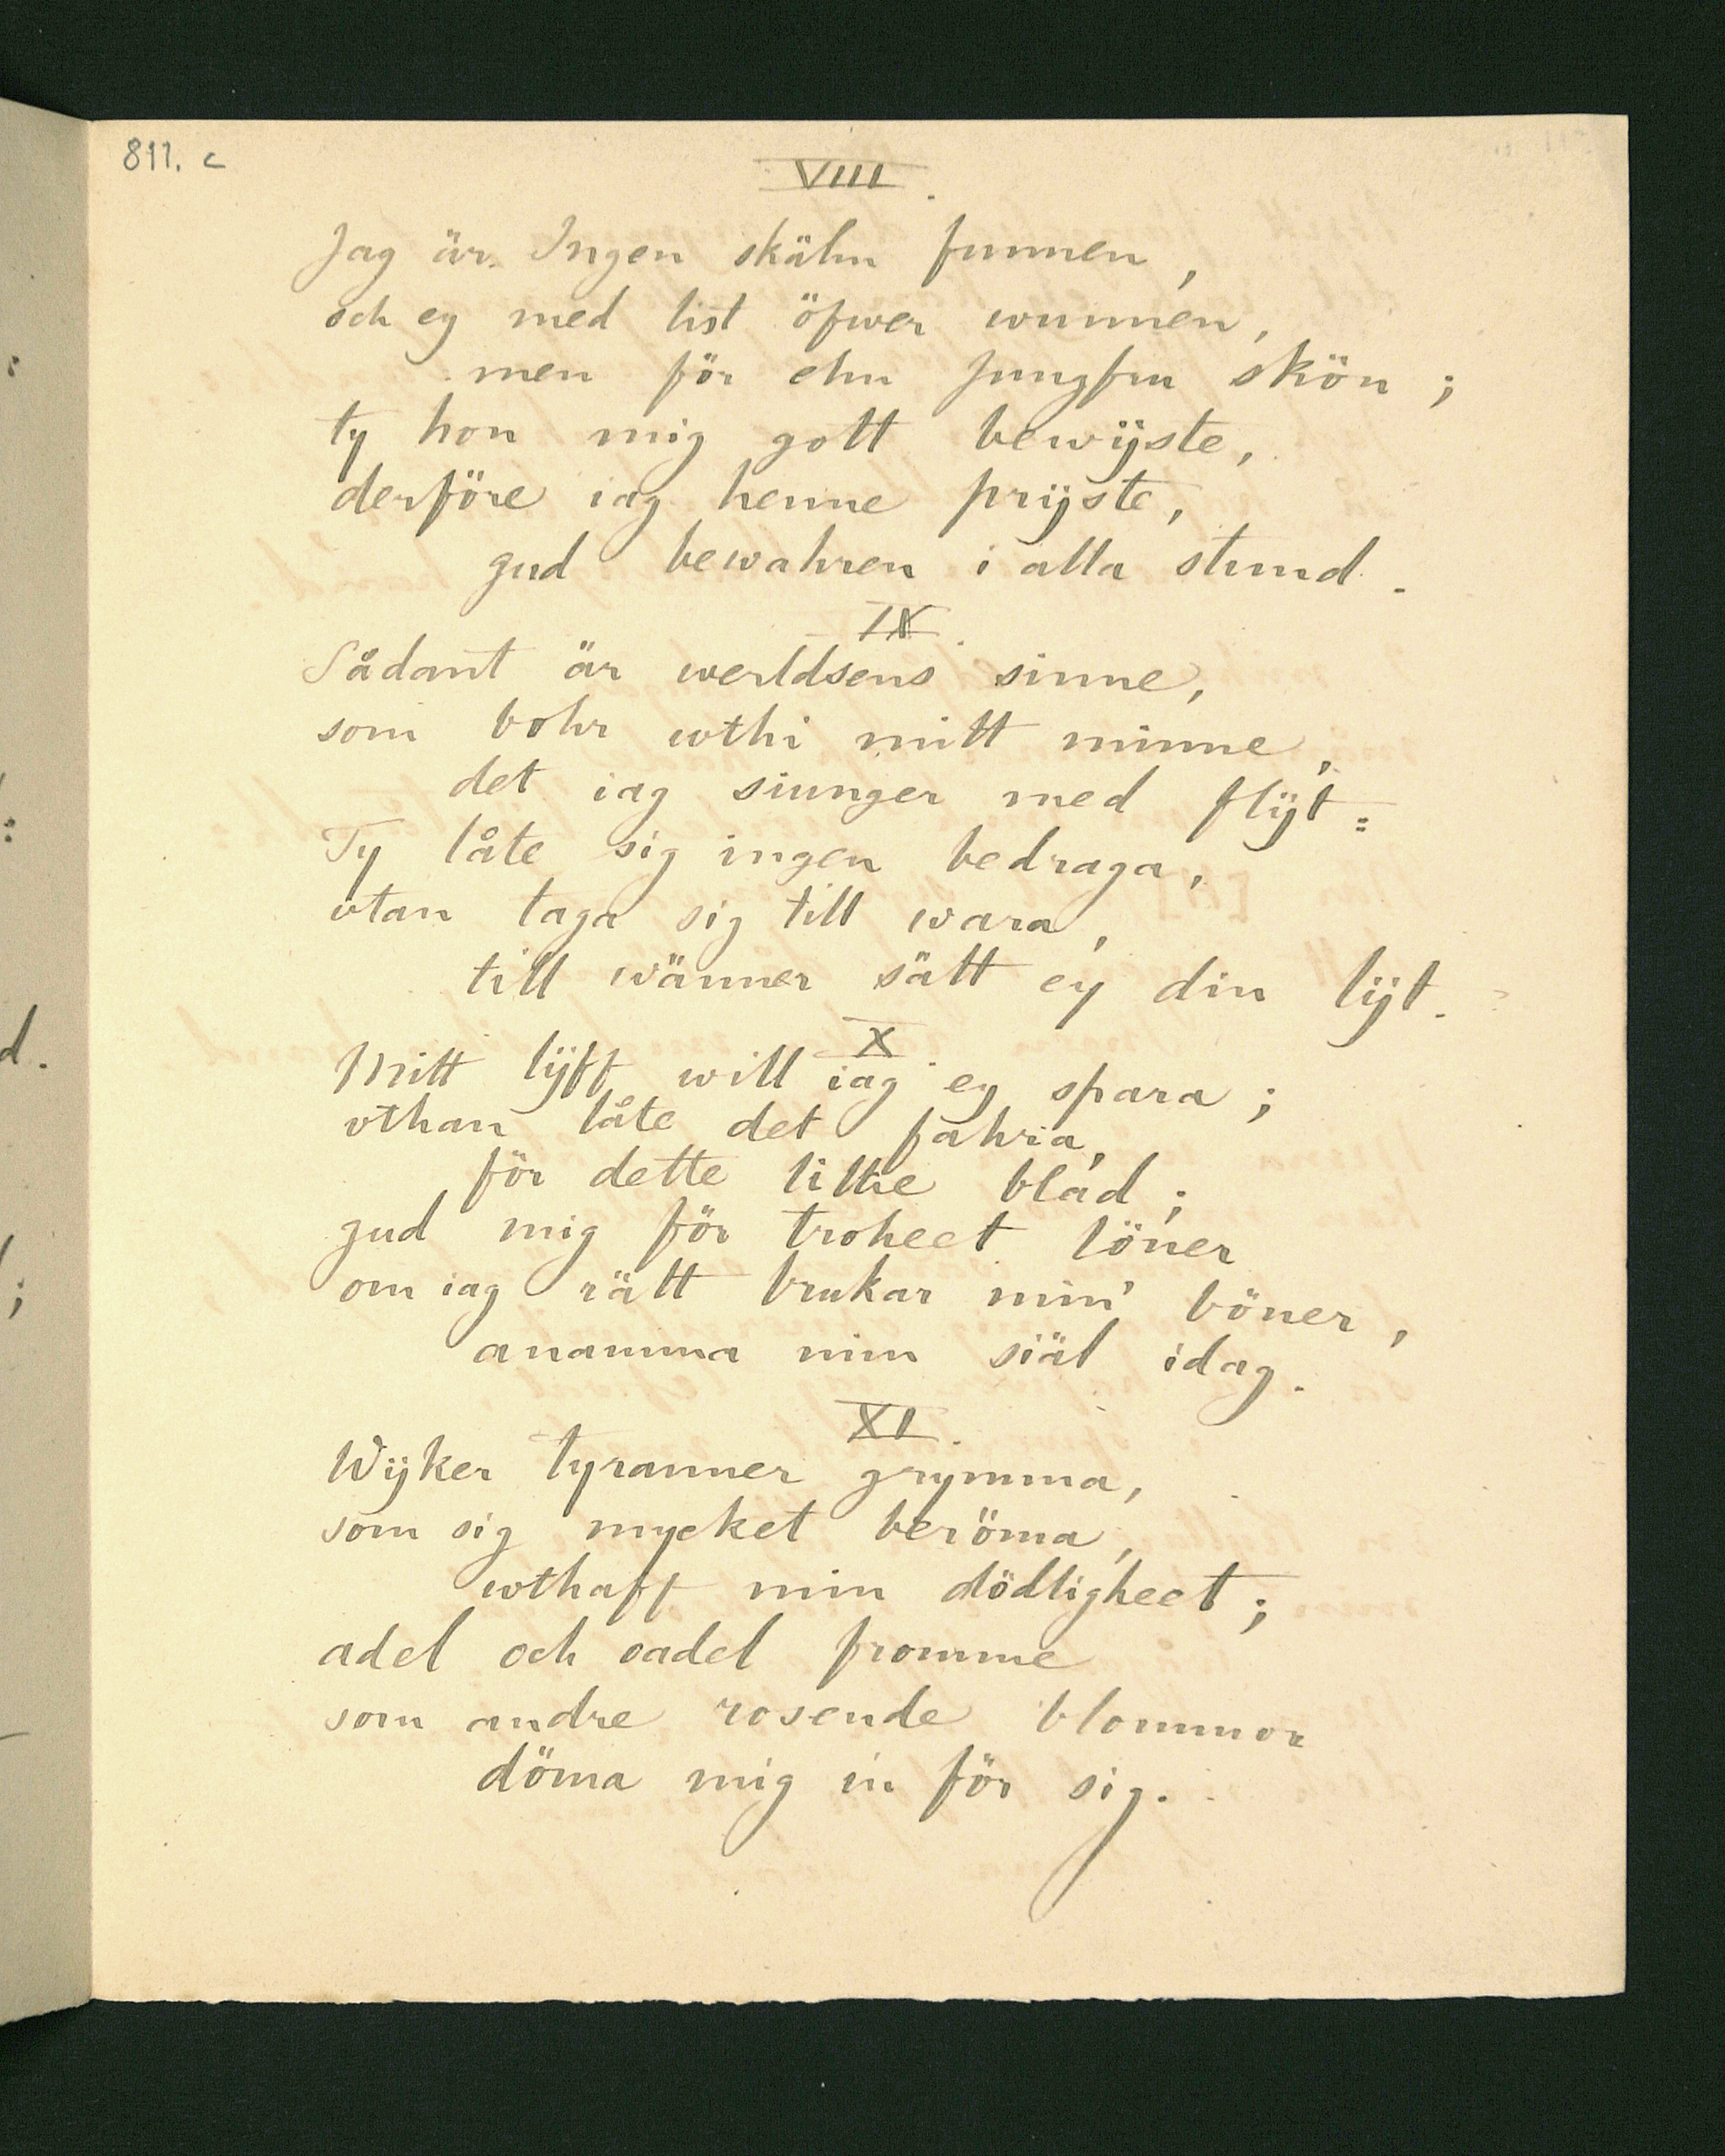 811. c
VIII.
Jag är Ingen skälm funnen,
och ey med list öfwer wunnen,
men för ehn Jungfru skön;
ty hon mig gott bewijste,
derföre iag henne prijste,
gud bewahren i alla stund.
IX.
Sådant är werldsens sinne,
som bohr wthi mitt minne,
det iag siunger med flijt:
Ty låte sig ingen bedraga,
vtan taga sig till wara,
till wänner sätt ey din lijt.
X.
Mitt lijff will iag ey spara;
vthan låte det fahra,
för dette lithe blad;
gud mig för troheet löner
om iag rätt brukar min' böner,
anamma min siäl idag.
XI.
Wijker tyranner grymma,
som sig mycket beröma,
wthaff min dödligheet;
adel och oadel fromme
som andre rosende blommor
döma mig in för sig.
d.
;